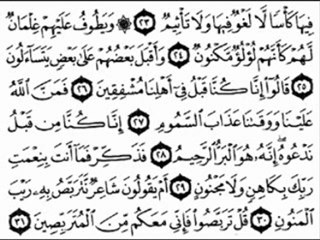 فِيهَا كَأْسًا لَّا لَغْوٌ فِيهَا وَلَا تَأْثِيمٌ ﴿٢٣﴾ ۞ وَيَطُوفُ عَلَيْهِمْ غِلْمَانٌ
لَّهُمْ كَأَنَّهُمْ لُؤْلُؤٌ مَّكْنُونٌ ﴿٢٤﴾ وَأَقْبَلَ بَعْضُهُمْ عَلَىٰ بَعْضٍ يَتَسَاءَلُونَ
﴿٢٥﴾ قَالُوا إِنَّا كُنَّا قَبْلُ فِي أَهْلِنَا مُشْفِقِينَ ﴿٢٦﴾ فَمَنَّ اللَّهُ
عَلَيْنَا وَوَقَانَا عَذَابَ السَّمُومِ ﴿٢٧﴾ إِنَّا كُنَّا مِن قَبْلُ
نَدْعُوهُ إِنَّهُ هُوَ الْبَرُّ الرَّحِيمُ ﴿٢٨﴾ فَذَكِّرْ فَمَا أَنتَ بِنِعْمَتِ
رَبِّكَ بِكَاهِنٍ وَلَا مَجْنُونٍ ﴿٢٩﴾ أَمْ يَقُولُونَ شَاعِرٌ نَّتَرَبَّصُ بِهِ رَيْبَ
الْمَنُونِ ﴿٣٠﴾ قُلْ تَرَبَّصُوا فَإِنِّي مَعَكُم مِّنَ الْمُتَرَبِّصِينَ ﴿٣١﴾